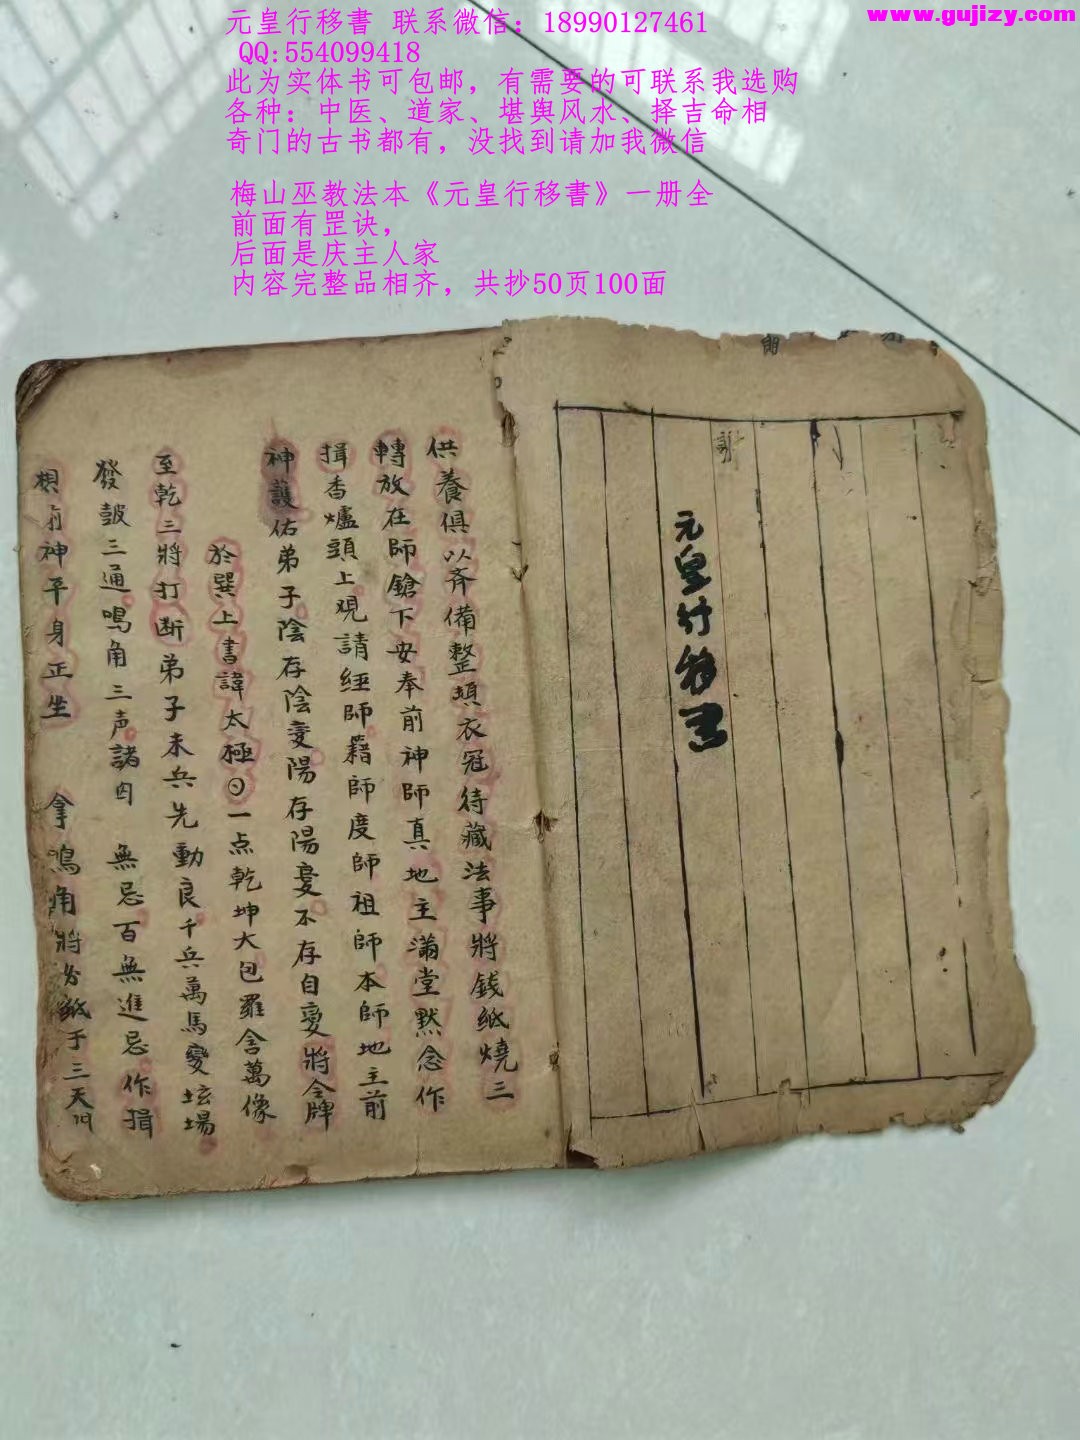 www.gujizy.com
元皇行移書 联系微信：18990127461
QQ:554099418
此为实体书可包邮，有需要的可联系我选购
各种：中医、道家、堪舆风水、择吉命相
奇门的古书都有，没找到请加我微信
梅山巫教法本《元皇行移書》一册全
前面有罡诀，
后面是庆主人家
内容完整品相齐，共抄50页100面
謝
元皇行移書
供養俱以斉備整頓衣冠待藏法事將錢紙燒三
轉放在師鎗下安奉前神師真地主滿堂黙念作
揖香爐頭上观請經師籍師度師祖師本師地主前
神護佑弟子陰存陰变陽存陽变不存自变將令牌
於巽上書諱太極一点乾坤大包羅含萬像
至乾三將打断弟子未兵先動良千兵萬馬变坛場
發皷三通鳴角三声諸因 無忌百無進忌作揖
神平身正坐 拿鳴角將分紙于三天门